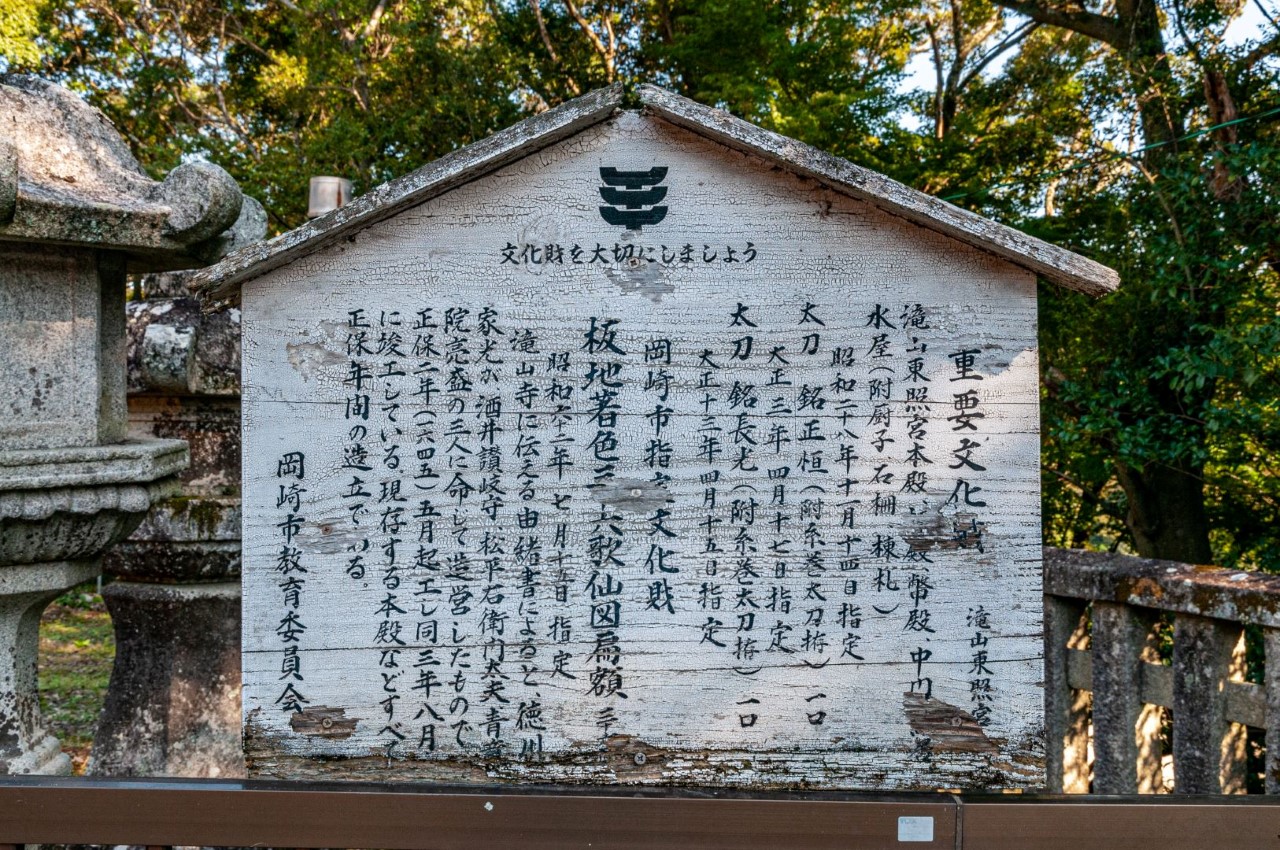 文化財を大切にしましょう
重要文化財 滝山東照宮
滝山東照宮本殿 殿 幣殿 中門
水屋(附厨子、石柵、棟札)
昭和二十八年十一月十四日指定
太刀 銘正恒(附糸巻太刀拵) 一口
大正三年四月十七日指定
太刀 銘長光(附糸巻太刀拵) 一口
大正十三年四月十五日指定
岡崎市指定文化財
板地著色三十六歌仙図扁額
昭和六二年七月十五日指定
滝山寺に伝える由緒書によると、徳川
家光が酒井讃岐守、松平右衛門太夫、青
院売盛の三人に命じて造営したもので
正保二年(一六四五)五月起工し同三年八月
に竣工している。現存する本殿などすべて
正保年間の造立である。
岡崎市教育委員会